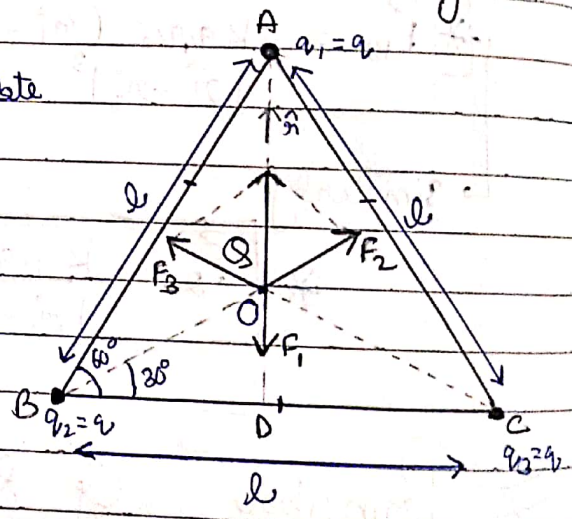 A
q₁ = q
r̂
l
l
Q
F₃
F₂
O
F₁
60°
30°
B
q₂ = q
D
C
q₃ = q
l